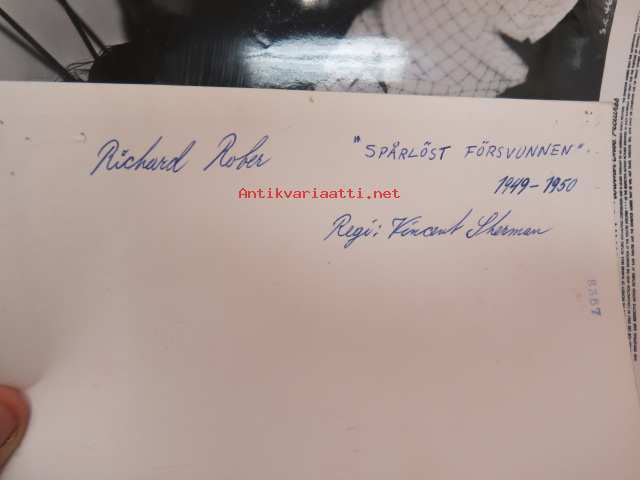 Richard Rober
"SPÅRLÖST FÖRSVUNNEN".
1949-1950
Regi: Vincent Sherman
Antikvariaatti.net
8367